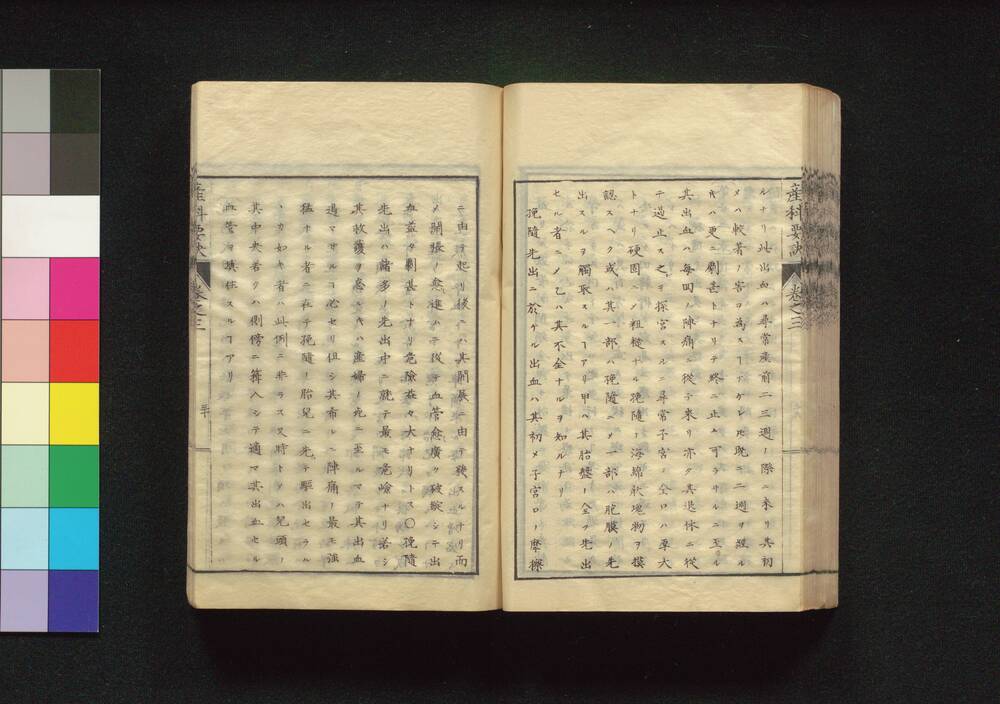 産科要訣 巻之三
ルナリ此出血ハ尋常産前二三週ノ際ニ来リ其初
メハ較著ノ害ヲ為スヿナケレ𪜈既ニ二週リ経ル
ハ更ニ劇甚トナリテ終ニ止ム可ラサルニ至ル
其出血ハ毎回ノ陣痛ニ従テ来リ亦タ其退休ニ従
テ過止ス之ヲ探宮スルニ尋常子宮ノ全口ハ厚大
トナリ硬固ニメ粗糙ナル挽隨ノ海綿状塊物ヲ摸
認スヘク或ハ其一部ハ挽隨ニメ一部ハ胞膜ノ先
出スルヲ觸取スルヿアリ甲ハ其胎盤ノ全ク先出
セル者ニメ乙ハ其不全ナルヲ知ルナリ
挽隨先出ニ於ケル出血ハ其初メ子宮口ノ摩擦
ニ由テ起リ後ニハ其開張ニ由テ發スルナリ而
メ開張ノ愈進ムニ從テ血管愈廣ク破綻シテ出
血益タ劇甚トナリ危險益々大ナリトス〇挽隨
先出ハ諸多ノ先出中ニ就テ最モ危嶮ナリ若シ
其收護ヲ怠ルキハ産婦ノ死ニ至ルマテ其出血
過マサルヿ必セリ但シ其布ノ陣痛ノ最モ強
猛ナル者ニ在テ挽隨ノ胎兒ニ先テ驅出セラル
ヽカ如キ者ハ此例ニ非ラス又時トメハ兒頭ノ
其中央若クハ側傍ニ箝入シテ適マ其出血セル
血管ヲ填住スルヿアリ
産科要訣 巻之三